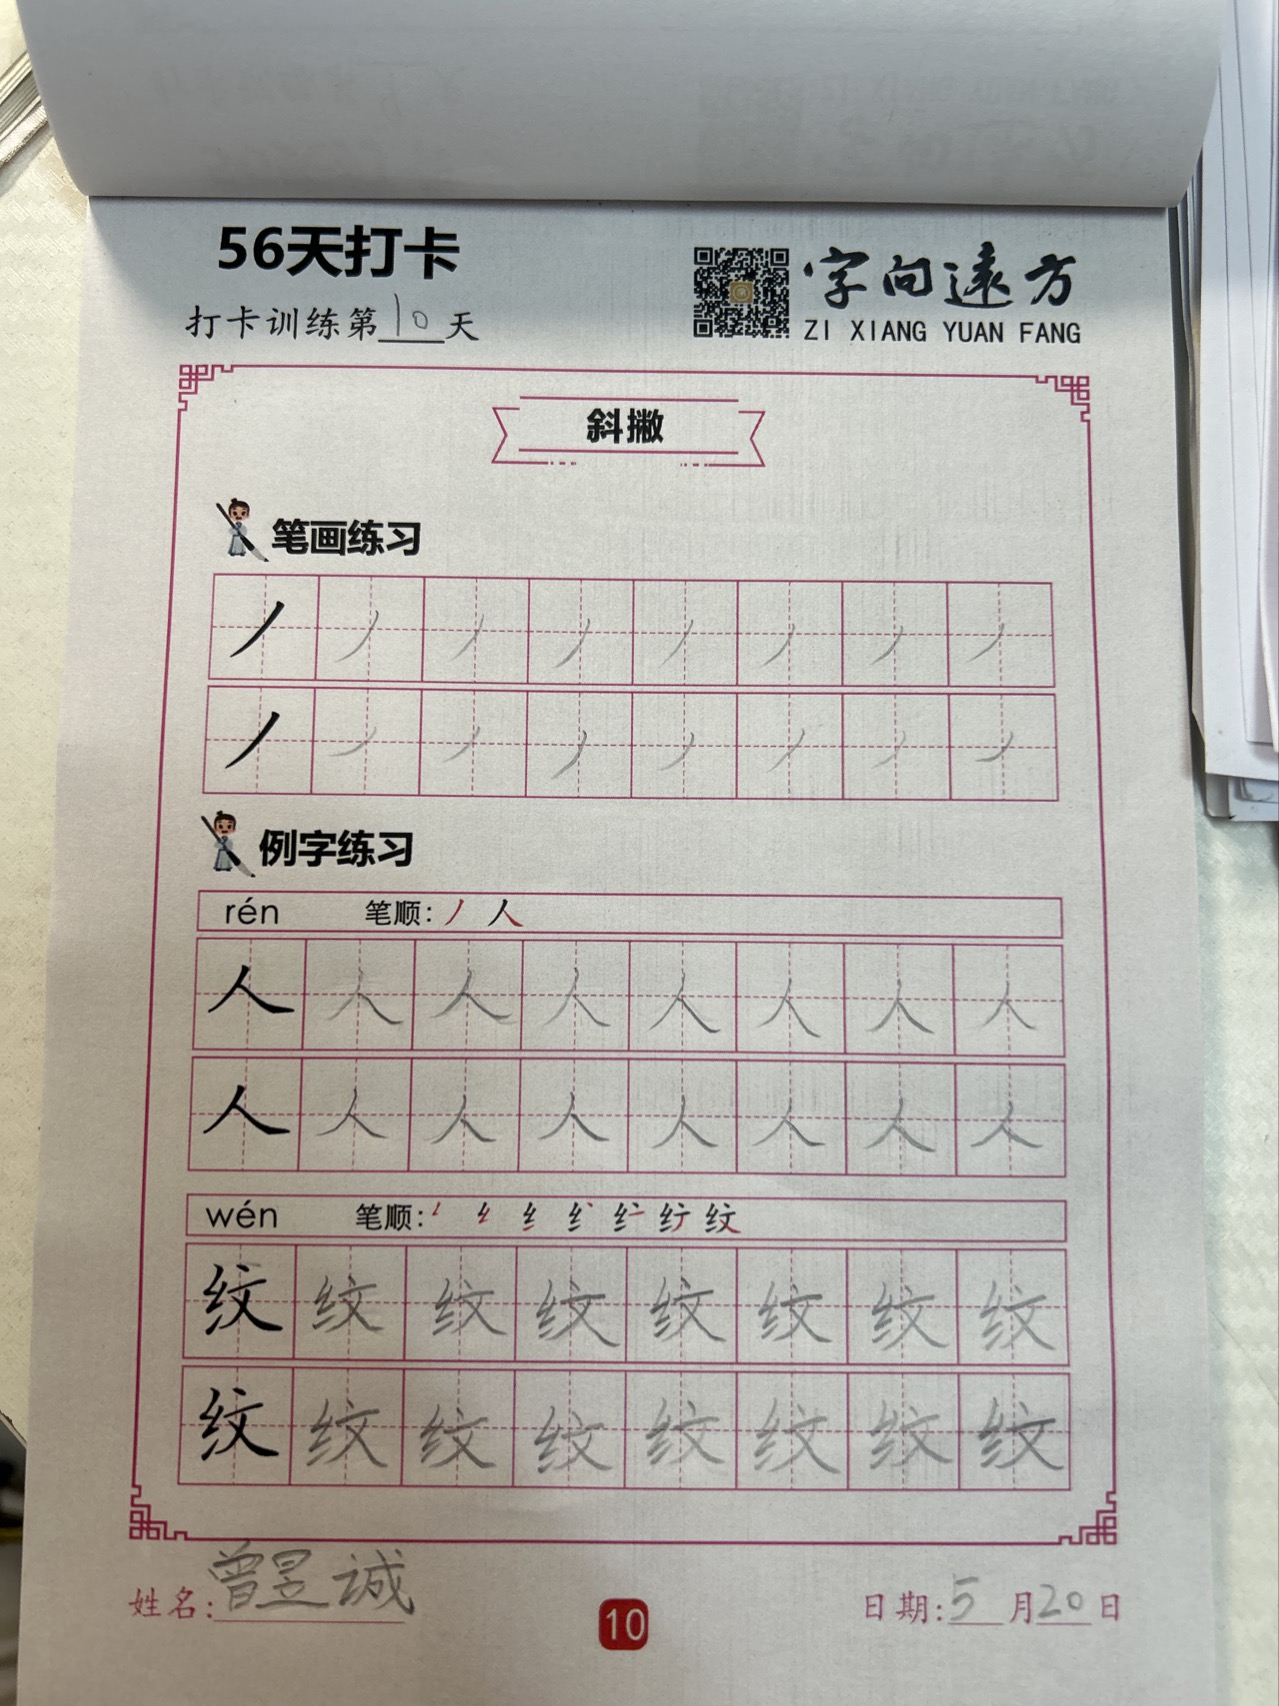 56天打卡
打卡训练第10天
字向远方
ZI XIANG YUAN FANG
斜撇
笔画练习
丿 丿 丿 丿 丿 丿 丿 丿
丿 丿 丿 丿 丿 丿 丿 丿
例字练习
rén 笔顺: 丿 人
人 人 人 人 人 人 人 人
人 人 人 人 人 人 人 人
wén 笔顺:
纹 纹 纹 纹 纹 纹 纹 纹
纹 纹 纹 纹 纹 纹 纹 纹
姓名:曾昱诚
10
日期:5月20日